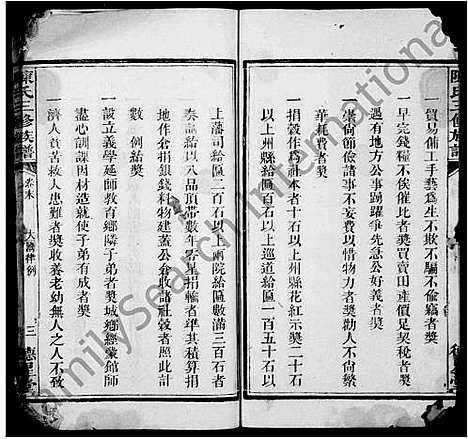 陳氏三修族譜
一貿易傭工手藝爲生不欺不騙不偷竊者獎
一早完錢糧不俟催比者獎買賣田產價足契稅者獎
遇有地方公事踴躍爭先急公好義者獎
崇尚節儉諸事不妄費以惜物力者獎勸人不尚繁
華
者獎
一捐穀作
本者十石以上州縣花紅示獎二十石
以上州縣給區
十石以上巡道給區一百五十石以
上藩司給區二百石以上兩院給區數滿三百石者
奏請給以八品頂帶數年零星捐輸者準其積算捐
地作倉捐銀錢料物建蓋公倉收諸社穀者照此計
數
例給獎
一設立義學延師教育鄉隣子弟者獎城鄉經蒙館師
盡心訓課因材造就使子弟有成者獎
一濟人貧苦救人患難者獎收養老幼無人之人不致
陳氏三修族譜
卷末
大清律例
三
德星堂
FamilySearch International